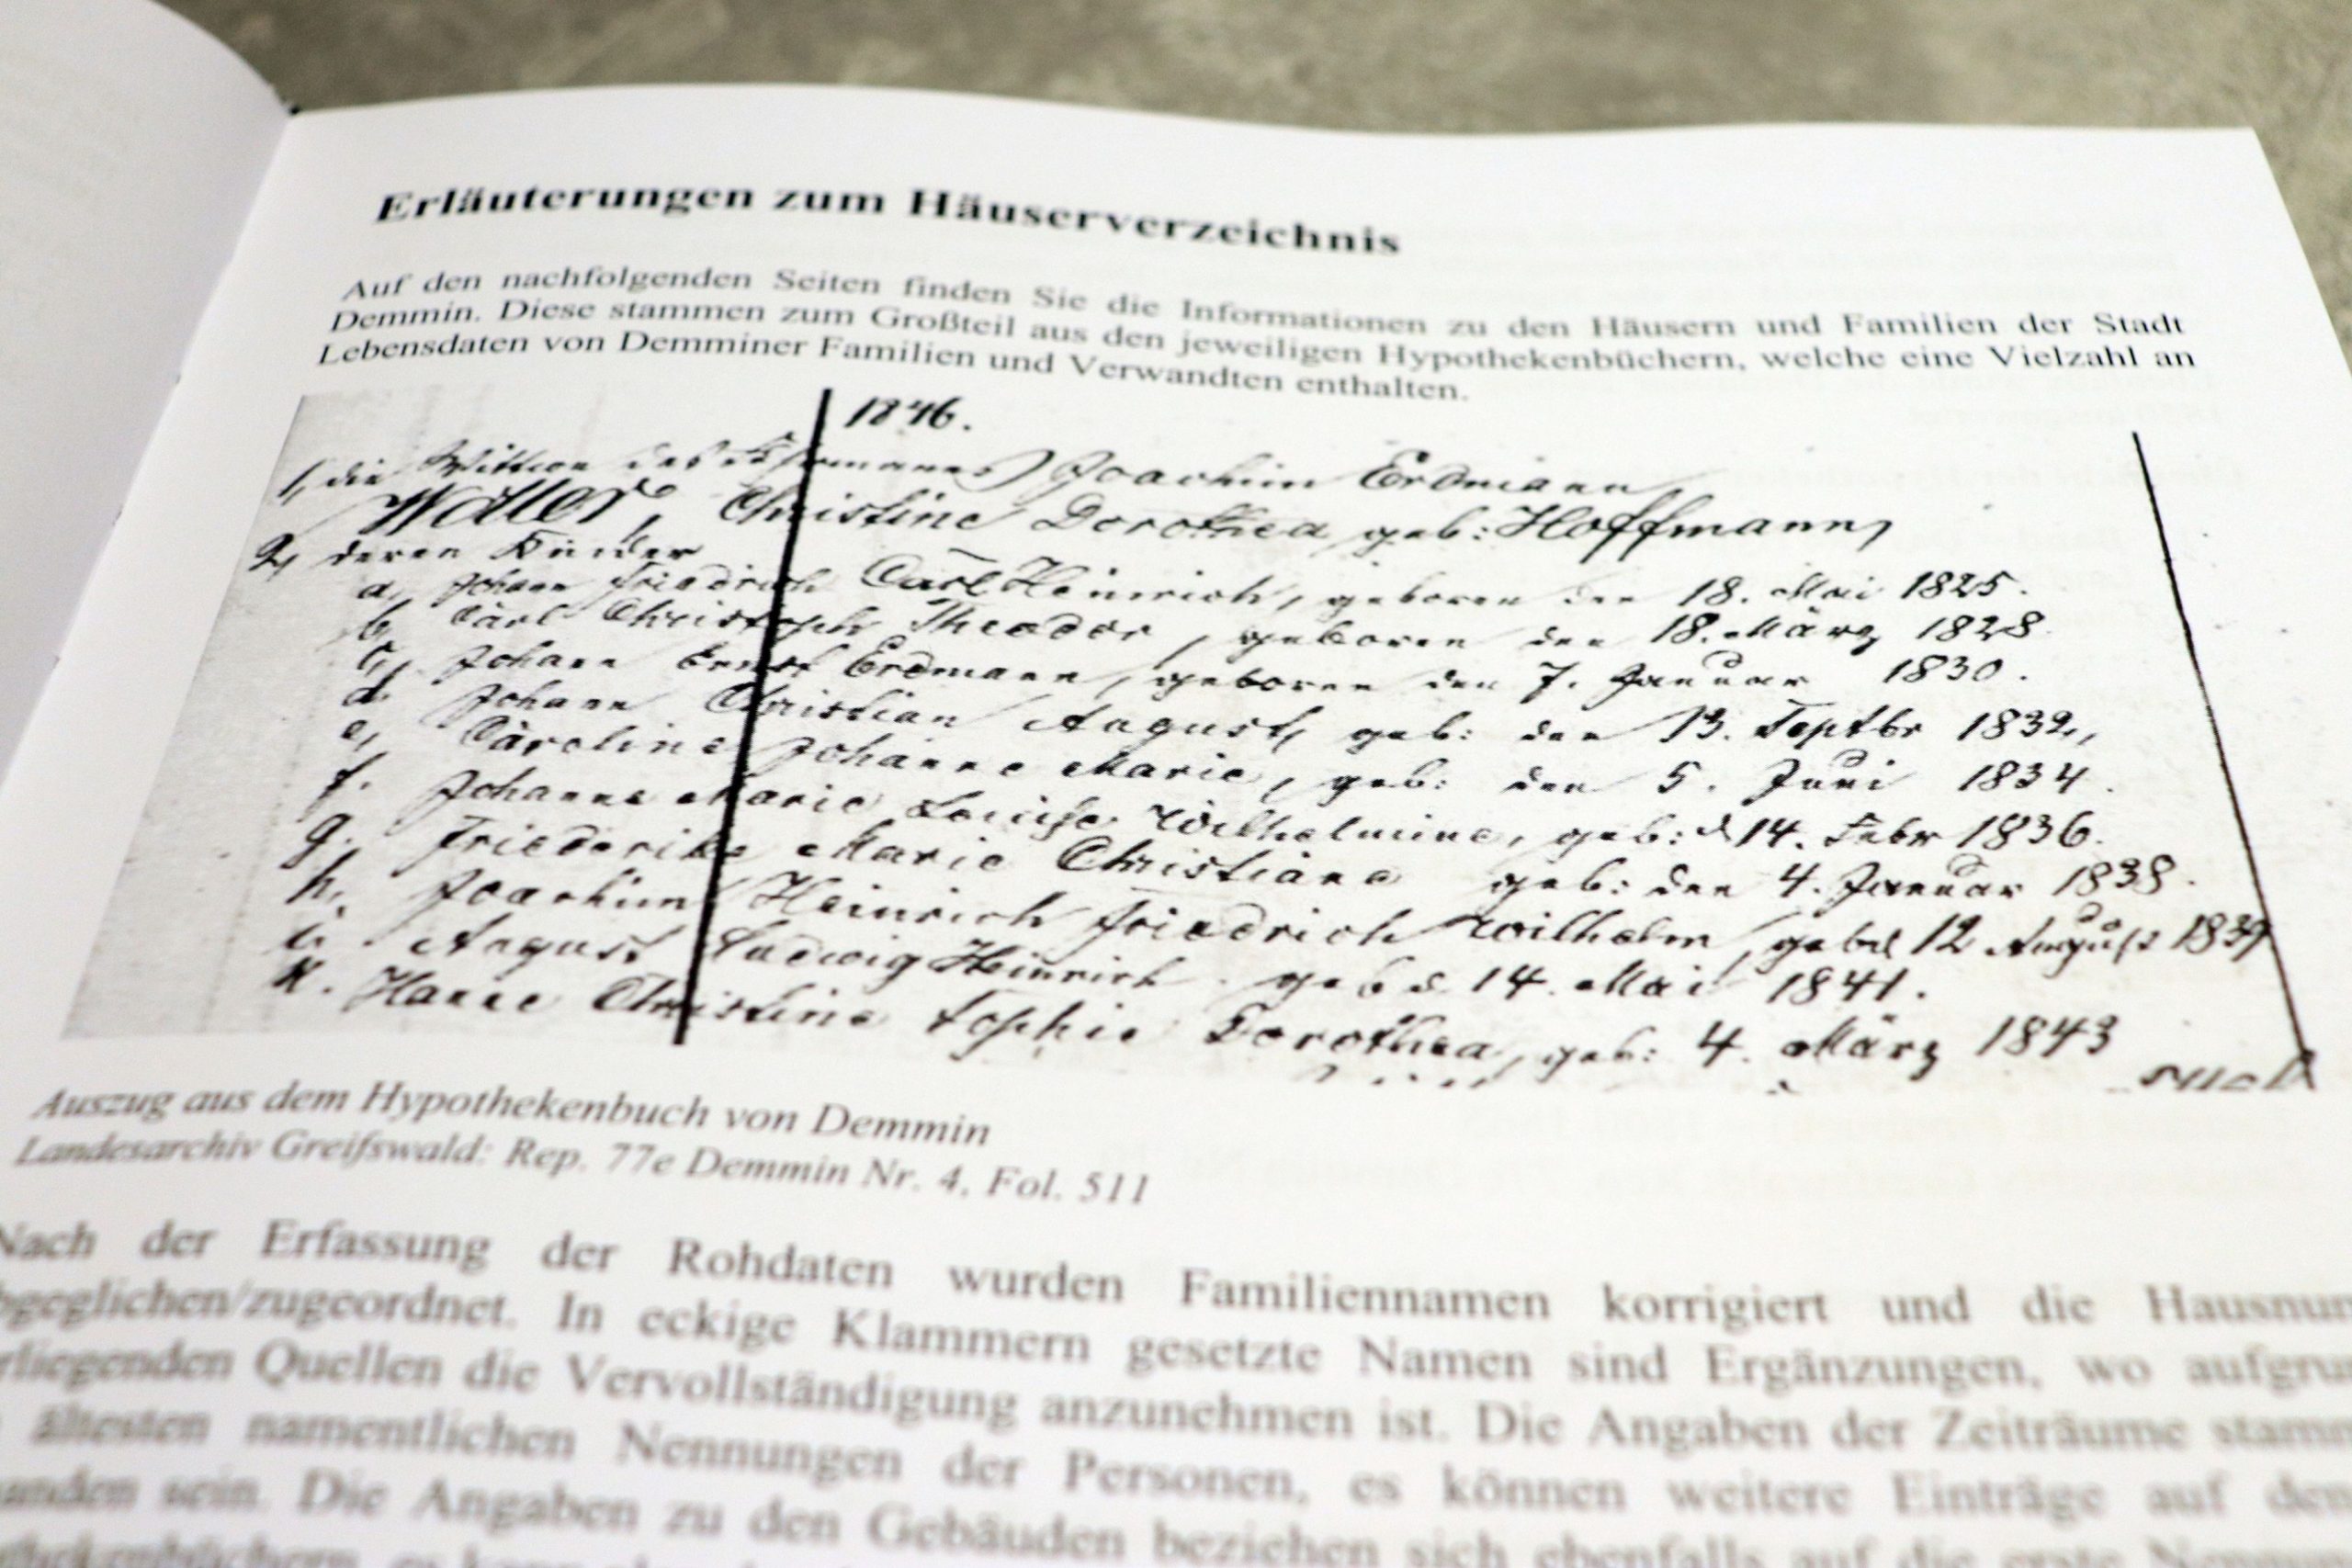 Erläuterungen zum Häuserverzeichnis
Auf den nachfolgenden Seiten finden Sie die Informationen zu den Häusern und Familien der Stadt
Demmin. Diese stammen zum Großteil aus den jeweiligen Hypothekenbüchern, welche eine Vielzahl an
Lebensdaten von Demminer Familien und Verwandten enthalten.
1846.
1, die Wittwe des Joachim Erdmann
Christine Dorothea geb: Hoffmann,
2, deren Kinder
a, Johann Friedrich Carl Heinrich, geboren den 18. Mai 1825.
b, Carl Christoph Theodor, geboren den 18. März 1828
c, Johann Ernst Erdmann, geboren den 7. Januar 1830.
d. Johann Christian August, geb: den 13. Septbr 1832,
e, Caroline Johanne Marie, geb: den 5. Juni 1834.
f. Johanne Marie Louise Wilhelmine, geb: d 14. Febr 1836.
g. Friederike Marie Christiane geb: den 4. Januar 1838.
h. Joachim Heinrich Friedrich Wilhelm, geb d 12 August 1839
i. August Ludwig Heinrich geb d. 14. Mai 1841.
k. Hanne Christine Sophie Dorothea, geb: 4. März 1843
Auszug aus dem Hypothekenbuch von Demmin
Landesarchiv Greifswald: Rep. 77e Demmin Nr. 4, Fol. 511
Nach der Erfassung der Rohdaten wurden Familiennamen korrigiert und die Hausnu
bgeglichen/zugeordnet. In eckige Klammern gesetzte Namen sind Ergänzungen, wo aufgru
rliegenden Quellen die Vervollständigung anzunehmen ist. Die Angaben der Zeiträume stam
ältesten namentlichen Nennungen der Personen, es können weitere Einträge auf de
anden sein. Die Angaben zu den Gebäuden beziehen sich ebenfalls auf die erste